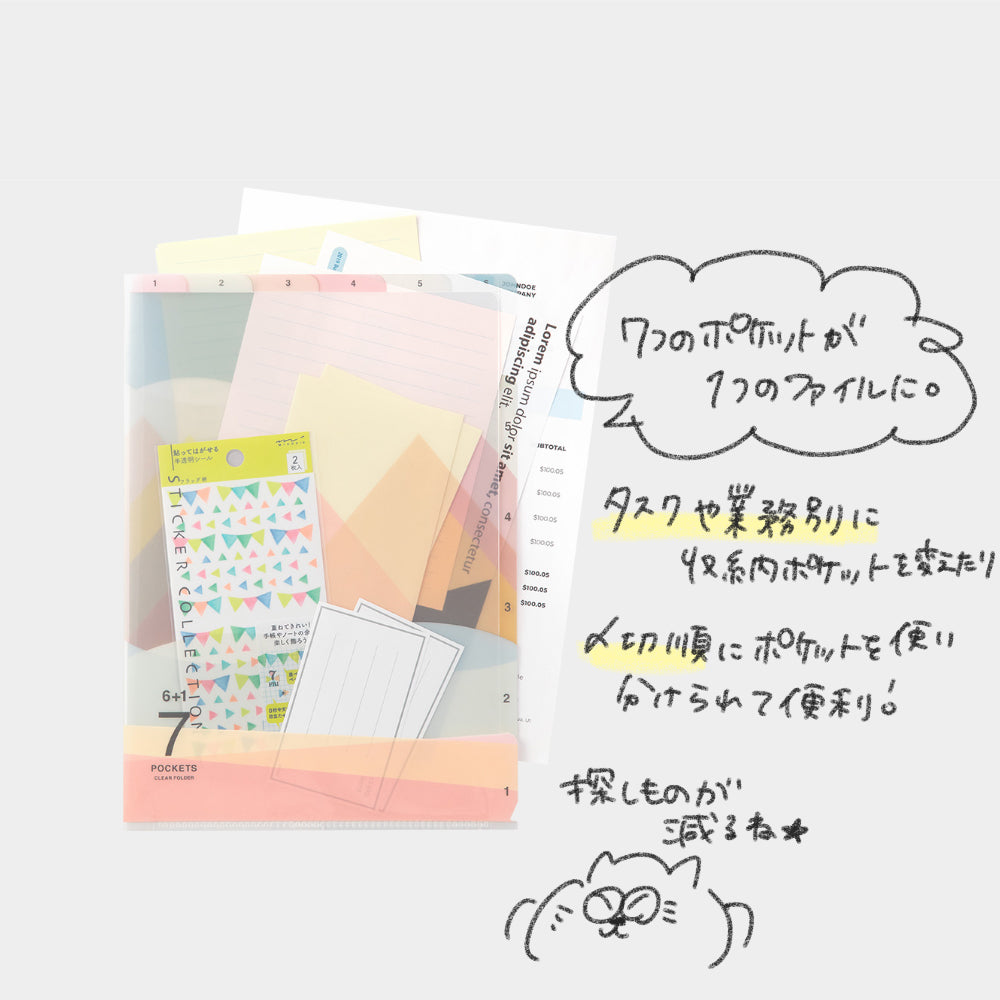 1 2 3 4 5
JOHNDOE
Lorem ipsum dolor sit amet, consectetur
adipiscing elit.
SUBTOTAL
$100.05
$100.05
$100.05
$100.05
$100.05
$100.05
$100.05
貼ってはがせる
半透明シール
フラッグ柄
2
枚入
STICKER COLLECTION
重ねてきれい!
手帳やノートの余
楽しく飾ろう
6+1
7
POCKETS
CLEAR FOLDER
5
4
3
2
1
7つのポケットが
1つのファイルに。
タスクや業務別に
収納ポケットを変えたり
〆切順にポケットを使い
分けられて便利!
探しものが
減るね★